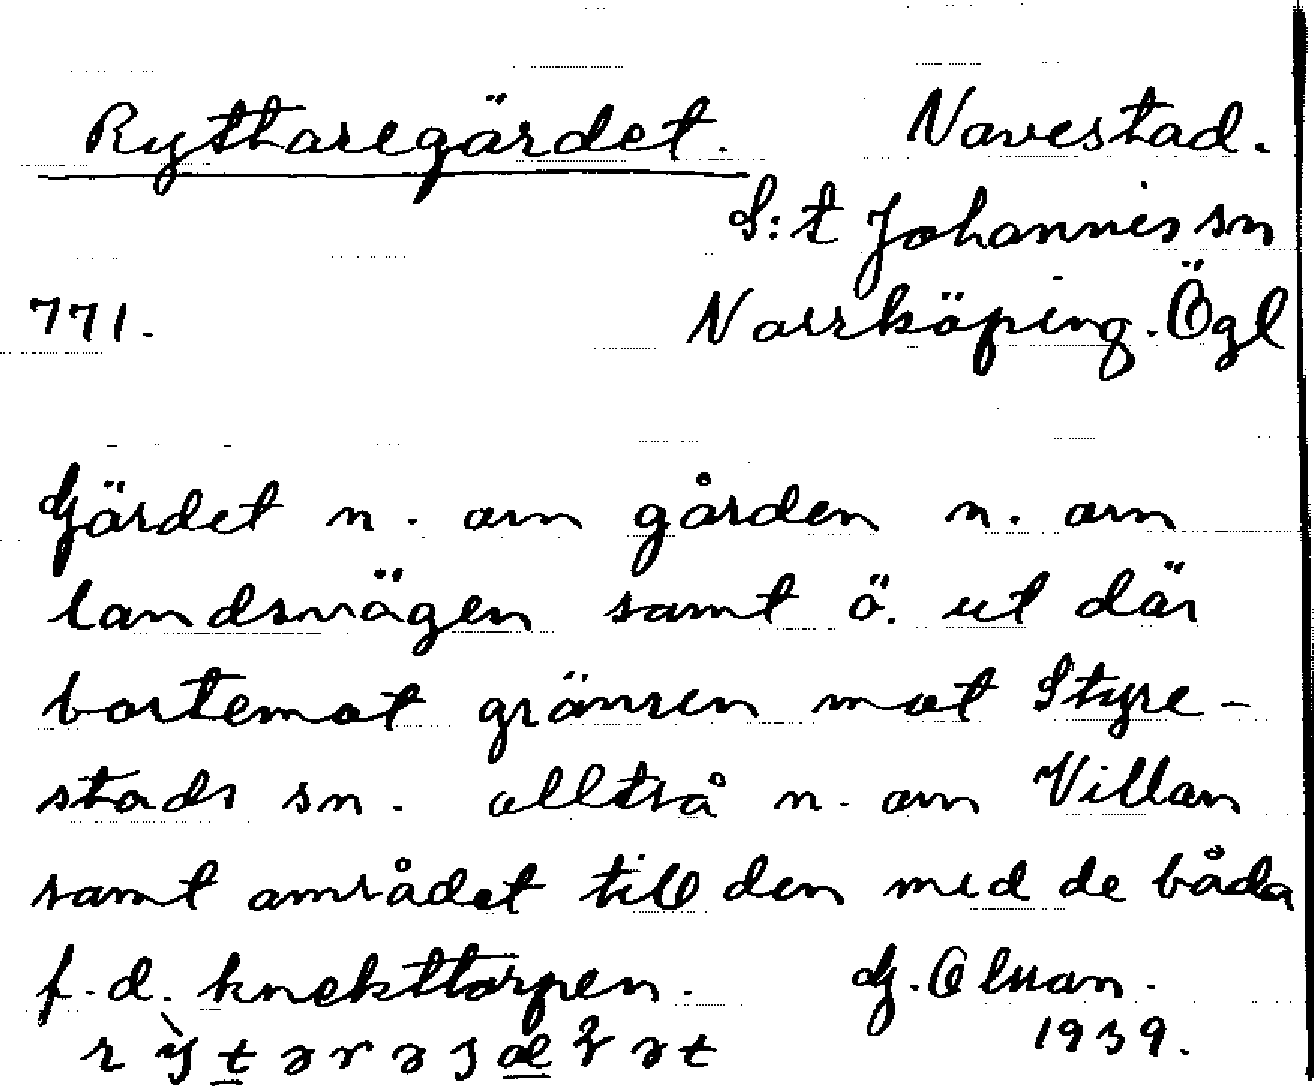 Ryttaregärdet. Navestad.
S:t Johannis sn
771. Norrköping. Ögl
Gärdet n. om gården n. om
landsvägen samt ö. ut där
bortemot gränsen mot Styre-
stads sn. alltså n. om Villan
samt området till den med de båda
f.d. knekttorpen. G. Olman.
1939.